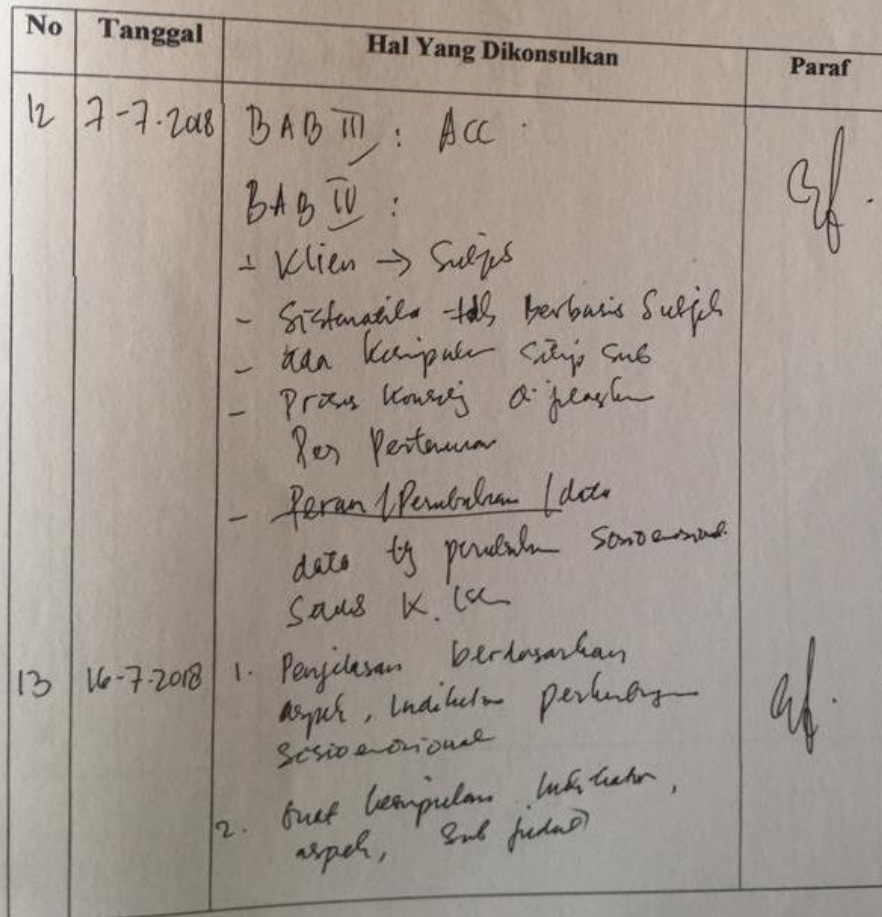 No Tanggal Hal Yang Dikonsulkan Paraf
12 7-7-2018 BAB III : ACC
BAB IV :
- Klien → Subjek
- Sistematika tdk Berbasis Subjek
- ada Kesimpulan setiap sub
- Proses Konseling di jelaskan
Per Pertemuan
- Peran / Perubahan / data
data ttg perubahan sosioemosional
13 16-7-2018 1. Penjelasan berdasarkan
aspek, Indikator perkembangan
sosioemosional
2. buat kesimpulan Indikator,
aspek, sub judul